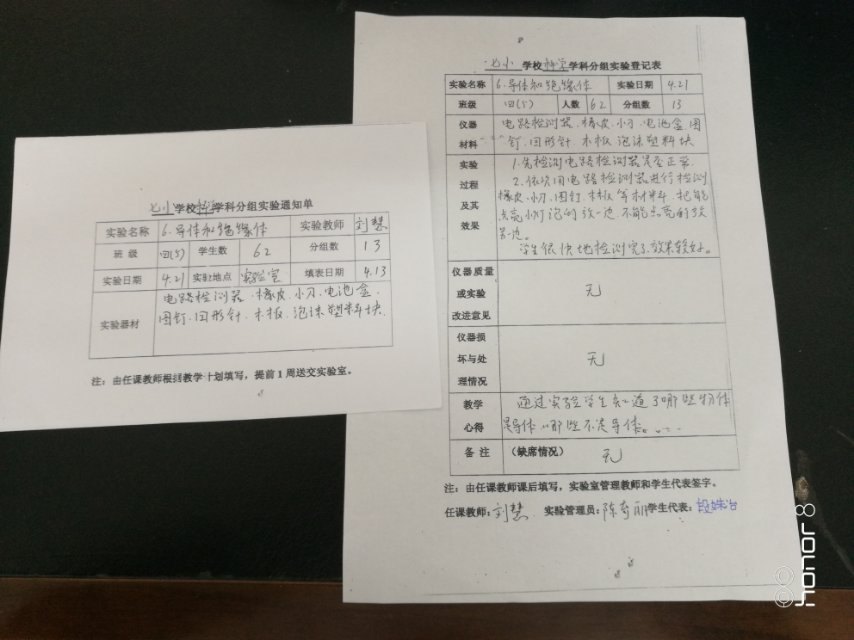 七小学校科学学科分组实验通知单
实验名称 6.导体和绝缘体 实验教师 刘慧
班 级 四(5) 学生数 62 分组数 13
实验日期 4.21 实验地点 实验室 填表日期 4.13
实验器材
电路检测器.橡皮.小刀.电池盒.
图钉.回形针.木板.泡沫塑料块.
注：由任课教师根据教学计划填写，提前1周送交实验室。
七小 学校科学学科分组实验登记表
实验名称 6.导体和绝缘体 实验日期 4.21
班级 四(5) 人数 62 分组数 13
仪器材料
电路检测器.橡皮.小刀.电池盒 图
钉.回形针 木板 泡沫塑料块
实验过程及其效果
1.先检测电路检测器是否正常
2.依次用电路检测器进行检测
橡皮.小刀.图钉.木板等材料.把能
点亮小灯泡的放一边.不能点亮的放
另一边。
学生很快地检测完了.效果较好。
仪器质量或实验改进意见 无
仪器损坏与处理情况 无
教学心得
通过实验学生知道了哪些物体
是导体,哪些不是导体。
备 注 （缺席情况） 无
注：由任课教师课后填写，实验室管理教师和学生代表签字。
任课教师：刘慧 实验管理员：陈奇丽 学生代表：
honor 8